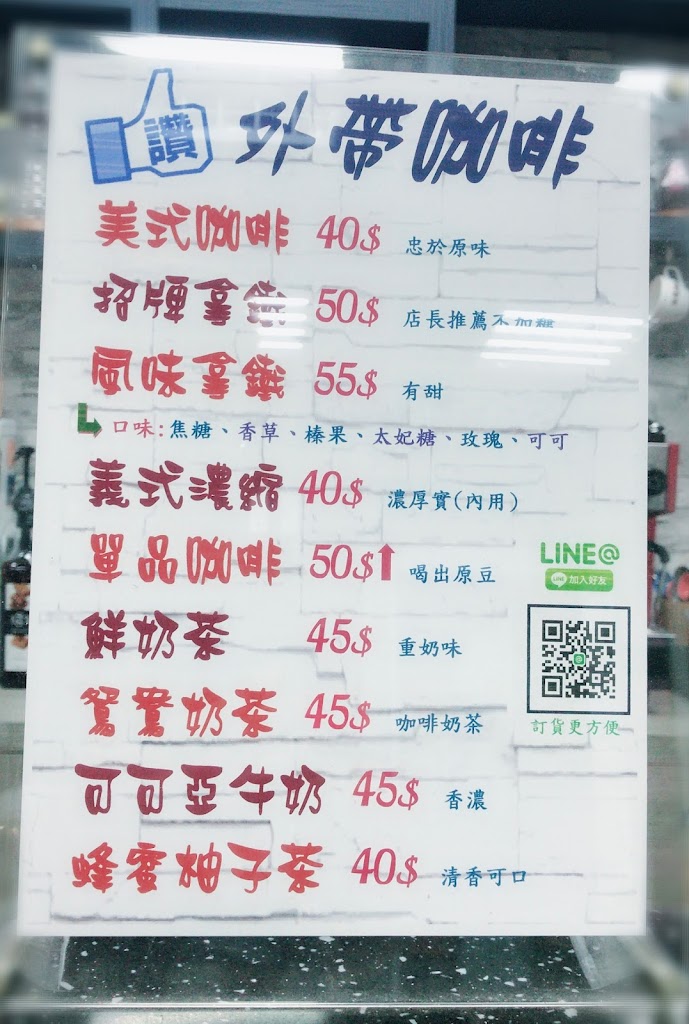 讚 外帶咖啡
美式咖啡 40$ 忠於原味
招牌拿鐵 50$ 店長推薦不加糖
風味拿鐵 55$ 有甜
口味:焦糖、香草、榛果、太妃糖、玫瑰、可可
義式濃縮 40$ 濃厚實(內用)
單品咖啡 50$⬆ 喝出原豆
LINE@
LINE 加入好友
鮮奶茶 45$ 重奶味
鴛鴦奶茶 45$ 咖啡奶茶
訂貨更方便
可可亞牛奶 45$ 香濃
蜂蜜柚子茶 40$ 清香可口